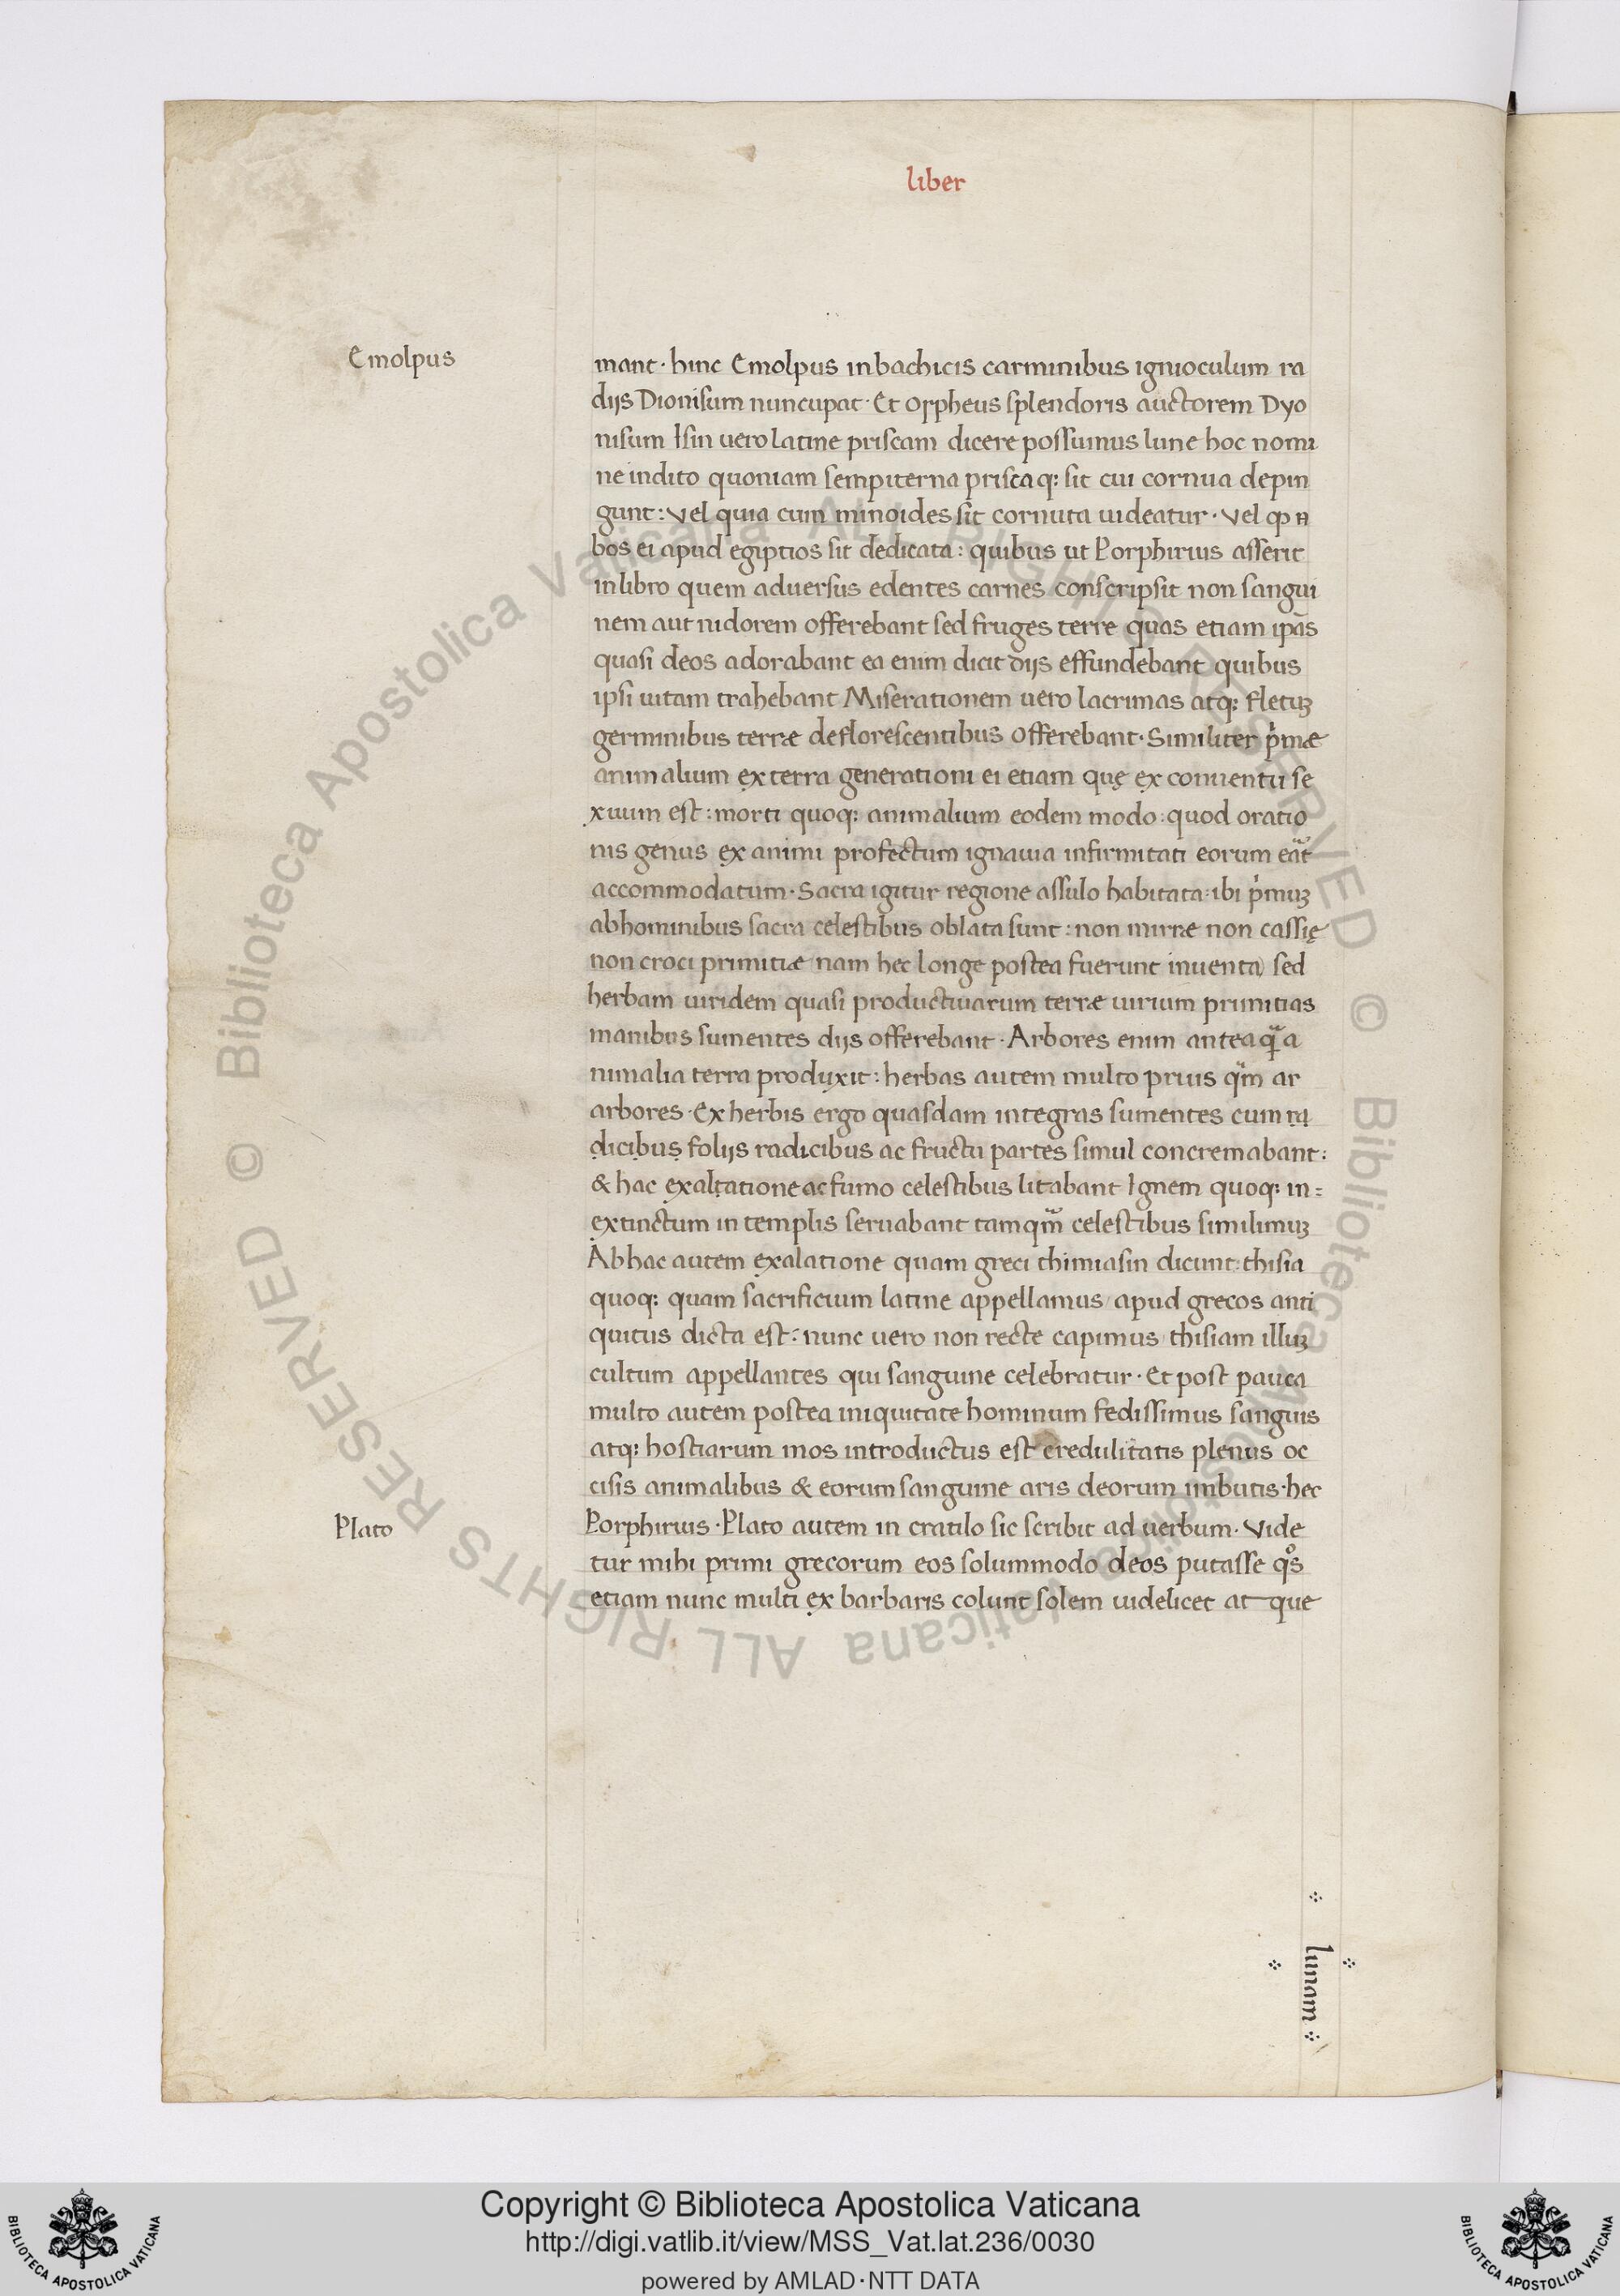 liber
Emolpus
mant · hinc Emolpus in bachicis carminibus ignioculum ra
dijs Dionisum nuncupat · Et Orpheus splendoris auctorem Dyo
nisum Isin uero latine priscam dicere possumus lune hoc nomi
ne indito quoniam sempiterna priscaq: sit cui cornua depin
gunt: vel quia cum minoides sit cornuta uideatur · vel qp
bos ei apud egiptios sit dedicata: quibus ut Porphirius asserit
in libro quem aduersus edentes carnes conscripsit non sangui
nem aut nidorem offerebant sed fruges terre quas etiam ip̄as
quasi deos adorabant ea enim dicit dijs effundebant quibus
ipsi uitam trahebant Miserationem uero lacrimas atq: fletuꝫ
germinibus terræ deflorescentibus offerebant · Similiter pͥmæ
animalium ex terra generationi ei etiam quę ex conuentu se
xuum est: morti quoq: animalium eodem modo: quod oratio
nis genus ex animi profectum ignauia infirmitati eorum eāt
accommodatum · Sacra igitur regione assulo habitata: ibi pͥmuꝫ
ab hominibus sacra celestibus oblata sunt: non mirræ non cassię
non croci primitiæ nam hec longe postea fuerunt inuenta) sed
herbam uiridem quasi productiuarum terræ uirium primitias
manibus sumentes dijs offerebant · Arbores enim anteaq̄ a
nimalia terra produxit: herbas autem multo prius qm̄ ar
arbores · Ex herbis ergo quasdam integras sumentes cum ra
dicibus folijs radicibus ac fructu partes simul concremabant:
& hac exaltatione ac fumo celestibus litabant Ignem quoq: in=
extinctum in templis seruabant tamqm̄ celestibus similimuꝫ
Ab hac autem exalatione quam greci thimiasin dicunt: thisia
quoq: quam sacrificium latine appellamus / apud grecos anti
quitus dicta est: nunc uero non recte capimus / thisiam illuꝫ
cultum appellantes qui sanguine celebratur · Et post pauca
multo autem postea iniquitate hominum fedissimus sanguis
atq: hostiarum mos introductus est credulitatis plenus oc
cisis animalibus & eorum sanguine aris deorum imbutis · hec
Plato
Porphirius · Plato autem in cratilo sic scribit ad uerbum · Vide
tur mihi primi grecorum eos solummodo deos putasse qͦs
etiam nunc multi ex barbaris colunt solem uidelicet at que
lunam
Copyright © Biblioteca Apostolica Vaticana
http://digi.vatlib.it/view/MSS_Vat.lat.236/0030
powered by AMLAD·NTT DATA
BIBLIOTECA APOSTOLICA VATICANA
BIBLIOTECA APOSTOLICA VATICANA
© Biblioteca Apostolica Vaticana ALL RIGHTS RESERVED © Biblioteca Apostolica Vaticana ALL RIGHTS RESERVED